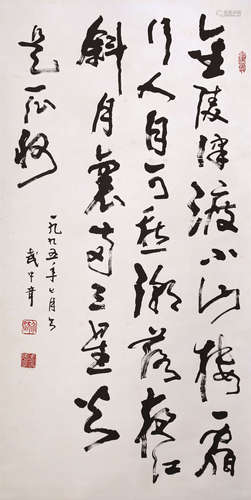 金陵津渡小山樓一宿
行人自可愁潮落夜江
斜月裏两三星火
是瓜洲
一九九五年七月书
武中奇